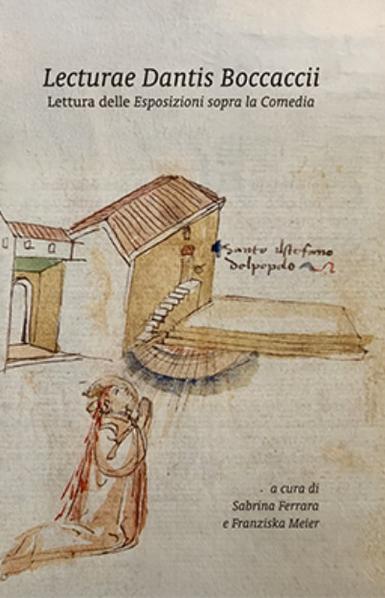 Lecturae Dantis Boccaccii
Lettura delle Esposizioni sopra la Comedia
Santo Stefano
del popolo
a cura di
Sabrina Ferrara
e Franziska Meier